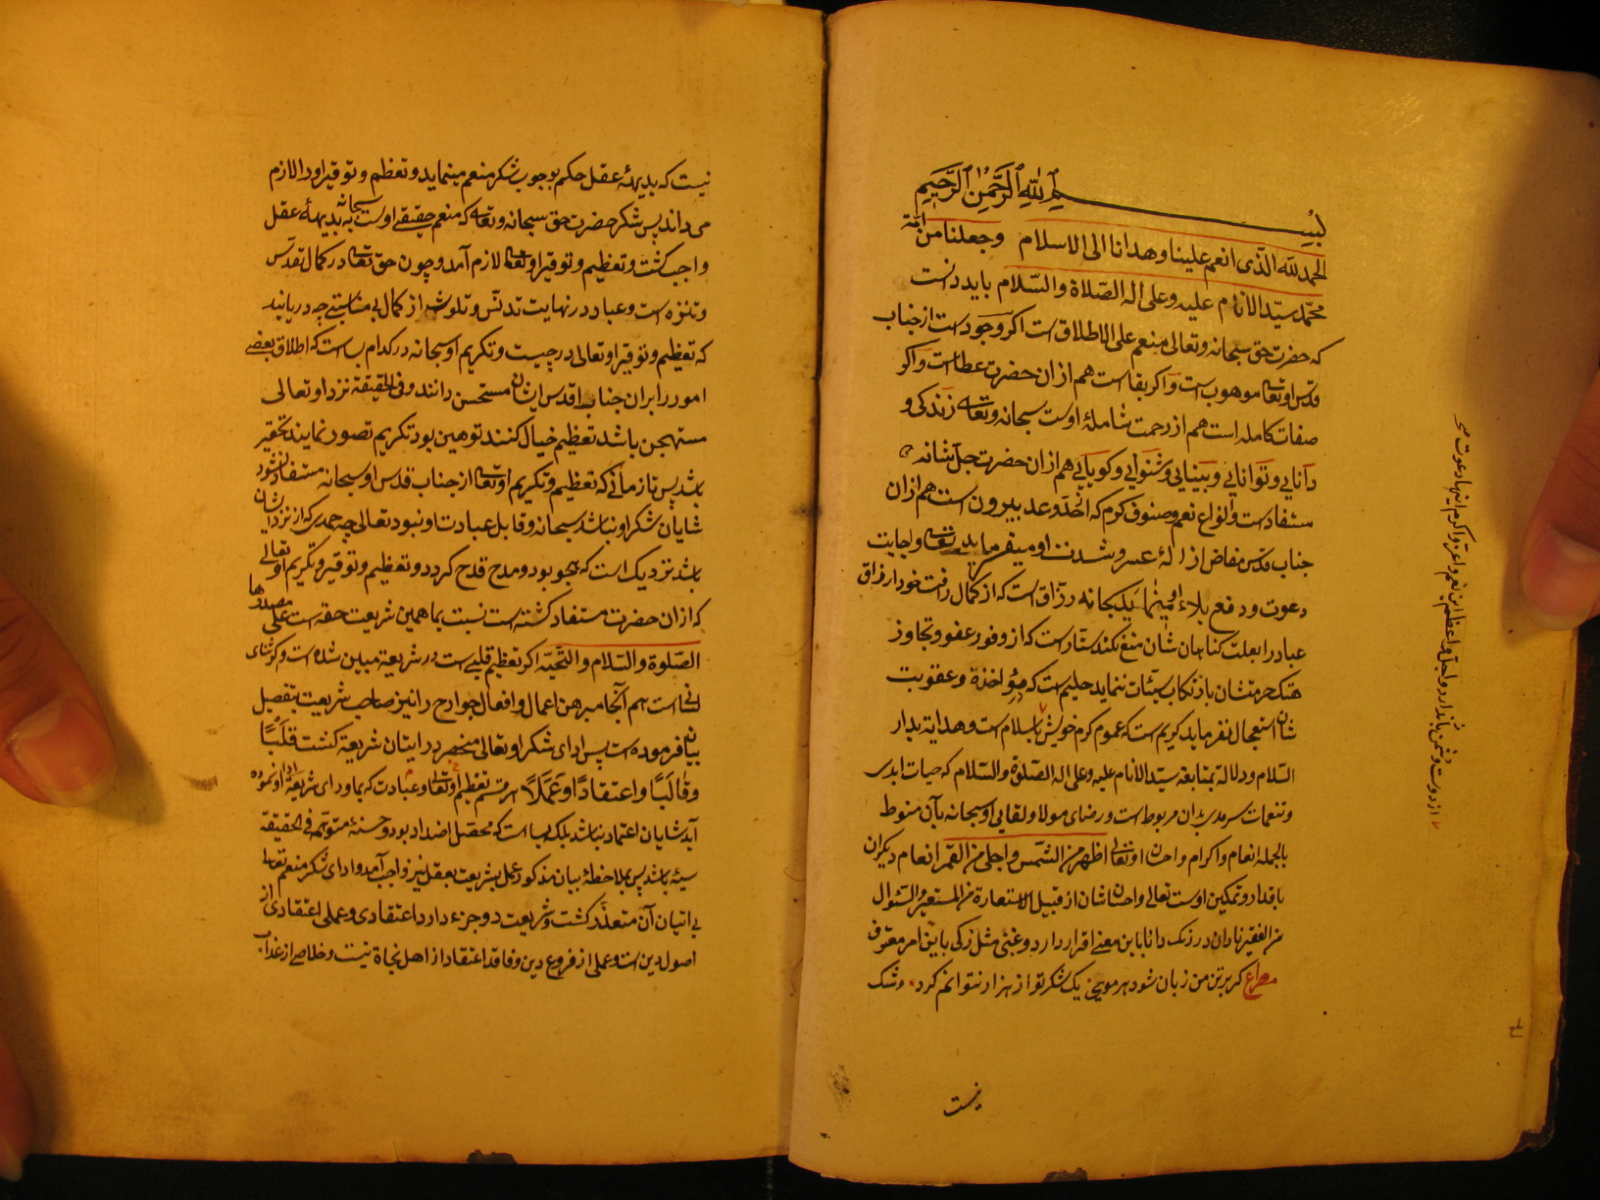 بسم الله الرحمن الرحيم
الحمد لله الذی انعم علینا وهدانا الی الاسلام وجعلنا من امّة
محمّد سیّد الانام علیه وعلی اله الصّلاة والسّلام باید دانست
که حضرت حق سبحانه وتعالی منعم علی الاطلاق است اکر وجود است از جناب
قدس او تعالی موهوب است واکر بقا است هم ازان حضرت عطا است واکر
صفات کامله است هم از رحمت شاملهٔ اوست سبحانه وتعالی زندکی و
دانایی وتوانایی وبینایی وشنوایی وکویایی هم ازان حضرت جل شانه
مستفاد است وانواع نعم وصنوف کرم که از حد وعد بیرون است هم ازان
جناب قدس مفاض ازالهٔ عسر وشدت او میفرماید تعالی واجابت
دعوت ودفع بلاء او مینماید سبحانه رزاق است که از کمال رافت خود ارزاق
عباد را بعلت کناهان شان منع نکند ستار است که از وفور عفو وتجاوز
هتک حرمتشان بارتکاب سیئات ننماید حلیم است که در مؤاخذة وعقوبت
شان استعجال نفرماید کریم است که عموم کرم خویش باسلام است وهدایة بدار
السّلام ودلالة بمتابعة سیّد الانام علیه وعلی اله الصّلوة والسّلام که حیات ابدی
وتنعمات سرمدی بدان مربوط است ورضای مولا ولقای او سبحانه بآن منوط
بالجمله انعام واکرام واحسان او تعالی اظهر من الشّمس واجلی من القمر انعام دیکران
باقدار وتمکین اوست تعالی واحسان شان از قبیل الاستعارة من المستعیر والسّوال
من الفقیر نادان در رنک دانا باین معنی اقرار دارد وغبی مثل زکی باین امر معترف
مصراع کر بر تن من زبان شود هر مویی یک شکر تو از هزار نتوانم کرد وشک
نیست
از دوست ودشمن باندازد واجل واعظم این نعم واعز واکرم اینها دعوت
نیست که بدیههٔ عقل حکم بوجوب شکر منعم مینماید وتعظیم وتوقیر او را لازم
می داند پس شکر حضرت حق سبحانه وتعالی که منعم حقیقی اوست سبحانه به بدیههٔ عقل
واجب کشت وتعظیم وتوقیر او تعالی لازم آمد وچون حق تعالی در کمال تقدّس
وتنزه است وعباد در نهایت تدنّس وتلوث از کمال بی مناسبتی چه دریابند
که تعظیم وتوقیر او تعالی در چیست وتکریم او سبحانه در کدام بسا است که اطلاق بعضی
امور را بران جناب اقدس ایشان مستحسن دانند وفی الحقیقة نزد او تعالی
مستهجن باشد تعظیم خیال کنند توهین بود تکریم تصور نمایند تحقیر
باشد پس تا زمانی که تعظیم وتکریم او تعالی از جناب قدس او سبحانه مستفاد نشود
شایان شکر او نباشد سبحانه وقابل عبادت او نبود تعالی چه حمدی که از نزد ایشان
باشد نزدیک است که هجو بود ومدح قدح کردد وتعظیم وتوقیر وتکریم او تعالی
که ازان حضرت مستفاد کشته است نسبت بما همین شریعت حقه است علی مصدرها
الصّلوة والسّلام والتّحیّة اکر تعظیم قلبی است در شریعة مبین شده است وکر ثنای
لسانی است هم آنجا مبرهن اعمال وافعال جوارح را نیز صاحب شریعت بتفصیل
بیان فرموده است پس ادای شکر او تعالی منحصر در ایتان شریعة کشت قلبًا
وقالبًا واعتقادًا وعملًا هر قسم تعظیم او تعالی وعبادت که بماورای شریعة ادا نموده
آید شایان اعتماد نباشد بلکه بسا است که محصّل اضداد بود وحسنهٔ متوهّم فی الحقیقة
سیئه باشد پس بملاحظهٔ بیان مذکور عمل بشریعت بعقل نیز واجب آمد وادای شکر منعم تعالی
بی اتیان آن متعذّر کشت وشریعت دو جزء دارد اعتقادی وعملی اعتقادی از
اصول دین است وعملی از فروع دین وفاقد اعتقاد از اهل نجاة نیست وخلاصی از عذاب